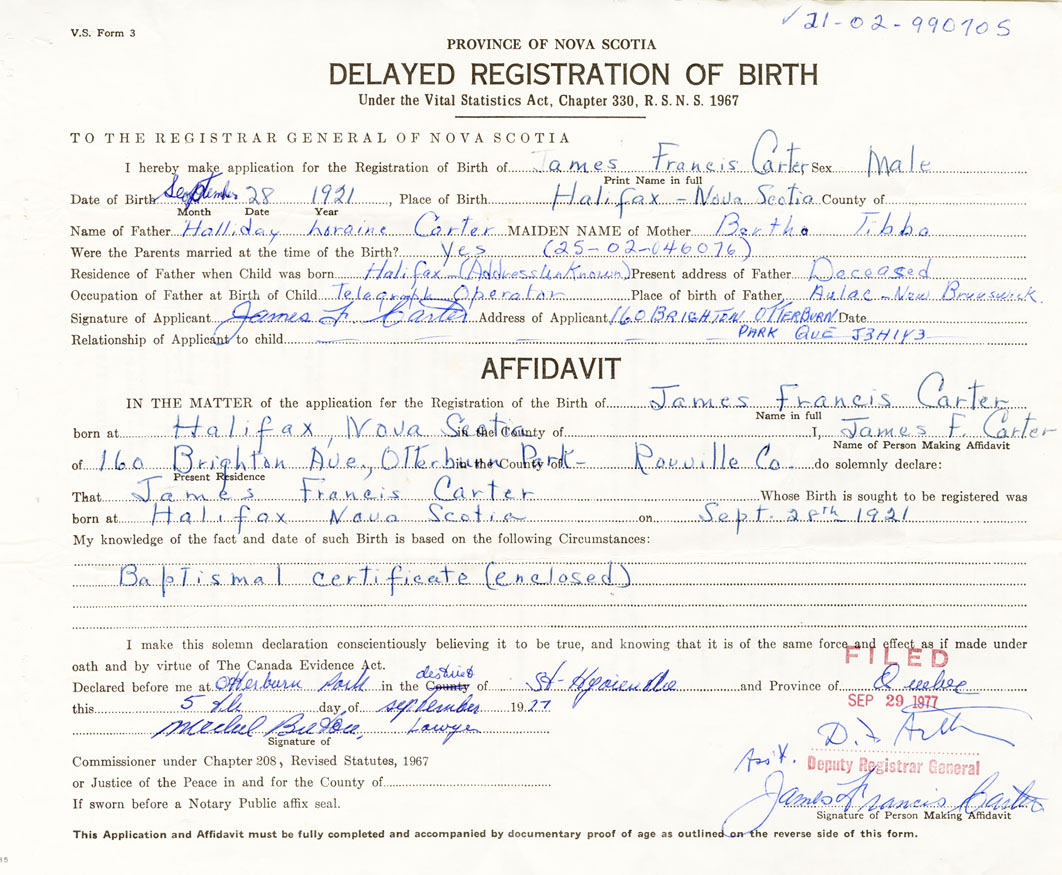 V.S. Form 3
✓21-02-990705
PROVINCE OF NOVA SCOTIA
DELAYED REGISTRATION OF BIRTH
Under the Vital Statistics Act, Chapter 330, R. S. N. S. 1967
TO THE REGISTRAR GENERAL OF NOVA SCOTIA
I hereby make application for the Registration of Birth of James Francis Carter Sex Male
Print Name in full
Date of Birth September 28 1921, Place of Birth Halifax - Nova Scotia County of
Month Date Year
Name of Father Halliday Loraine Carter MAIDEN NAME of Mother Bertha
Were the Parents married at the time of the Birth? Yes (25-02-046076)
Residence of Father when Child was born Halifax - (Address Unknown) Present address of Father Deceased
Occupation of Father at Birth of Child Telegraph Operator Place of birth of Father Aulac - New Brunswick.
Signature of Applicant James F Carter Address of Applicant 160 BRIGHTON OTTERBURN Date
PARK QUE J3H1Y3
Relationship of Applicant to child
AFFIDAVIT
IN THE MATTER of the application for the Registration of the Birth of James Francis Carter
Name in full
born at Halifax, Nova Scotia in the County of I, James F. Carter
Name of Person Making Affidavit
of 160 Brighton Ave., Otterburn Park - in the County of Rouville Co. do solemnly declare:
Present Residence
That James Francis Carter Whose Birth is sought to be registered was
born at Halifax Nova Scotia on Sept. 28th 1921
My knowledge of the fact and date of such Birth is based on the following Circumstances:
Baptismal certificate (enclosed)
I make this solemn declaration conscientiously believing it to be true, and knowing that it is of the same force and effect as if made under
oath and by virtue of The Canada Evidence Act.
FILED
district
Declared before me at Otterburn Park in the County of and Province of Quebec
this 5th day of september 1977
SEP 29 1977
Lawyer
Signature of
Commissioner under Chapter 208, Revised Statutes, 1967
Ass't. Deputy Registrar General
or Justice of the Peace in and for the County of
James Francis Carter
If sworn before a Notary Public affix seal.
Signature of Person Making Affidavit
This Application and Affidavit must be fully completed and accompanied by documentary proof of age as outlined on the reverse side of this form.